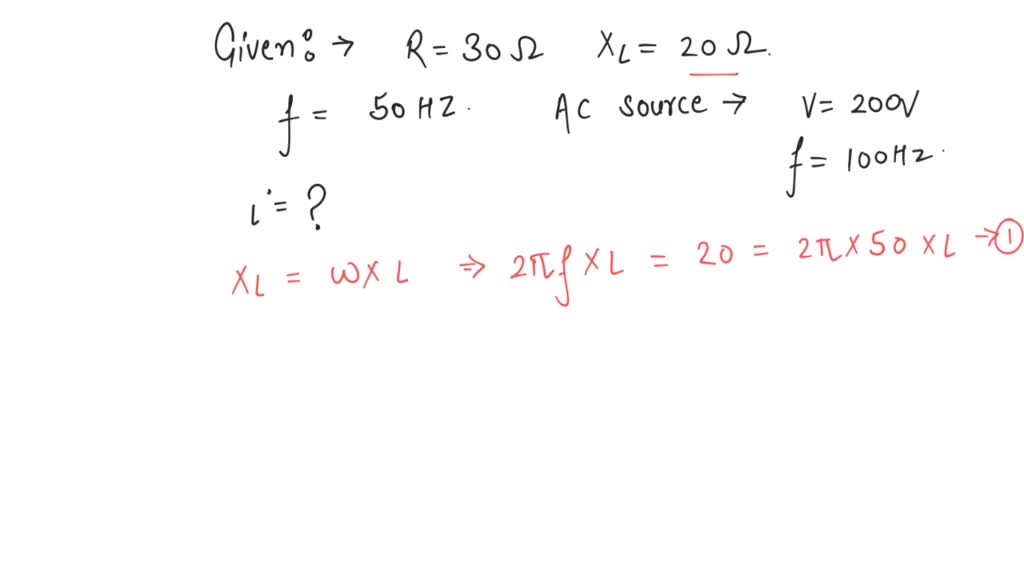 Given: → R = 30 Ω X_L = 20 Ω.
f = 50 HZ. AC source → V = 200V
f = 100Hz.
i = ?
X_L = ω × L ⇒ 2πf × L = 20 = 2π × 50 × L → ①